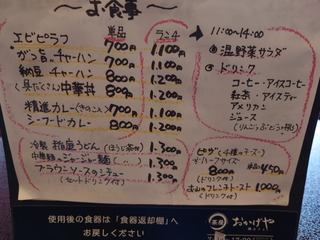 ～お食事～
単品 ランチ → 11:00~14:00
エビピラフ 700円 1,100円
がっ旨。チャーハン 700円 1,100円
納豆チャーハン 800円 1,200円
(具だくさん)中華丼 800円 1,200円
精進カレー(きのこ入) 700円 1,100円
シーフードカレー 800円 1,200円
冷製 稲庭うどん (ほうじ茶付) 1,300円
中華麺のジャージャー麺 1,300円
ブラウンソースのシチュー 1,300円
(セットドリンク付)
温野菜サラダ
ドリンク
コーヒー・アイスコーヒー
紅茶・アイスティー
アメリカン
ジュース
ピザ(4種のチーズ)
ハーフサイズ 単品 450円
800円
(ドリンク付)
フレンチトースト 1000円
(ドリンク付)
使用後の食器は「食器返却棚」へ
お戻しください
茶房 おかげや